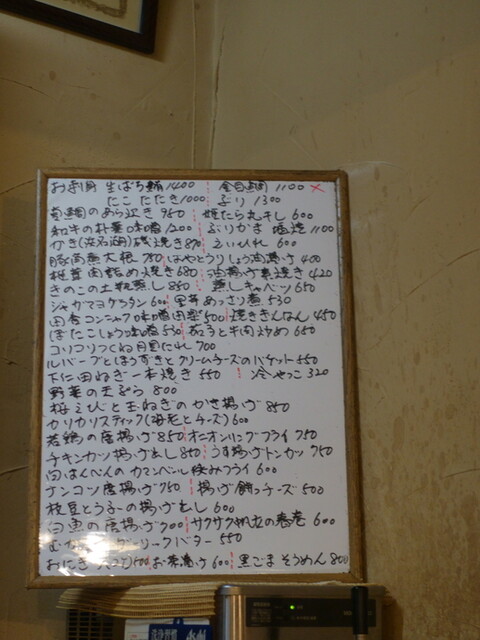 お刺身 生ばち鮪 1400 金目鯛 1100 ×
たこ たたき 1000 ぶり 1300
のあら炊き 950 姫たら丸干し 600
和牛の朴葉味噌 1200 ぶりかま 塩焼 1100
かき(浜名湖)磯焼き えいひれ 600
大根 750 はやとうりしょう油漬け 400
椎茸肉詰め焼き 680 油揚げ 焼き 420
きのこの土瓶蒸し 850 蒸しキャベツ 650
ジャガマヨグラタン 600 里芋あっさり煮 530
田舎コンニャク味噌田楽 500 焼きぎんなん 450
530 茄子と牛肉炒め 650
コリコリつくね 700
ルバーブとほうずきとクリームチーズのバケット 550
下仁田ねぎ一本焼き 550 冷やっこ 320
野菜の天ぷら 800
桜えびと玉ねぎのかき揚げ 850
カリカリスティック(海老とチーズ) 600
若鶏の唐揚げ 850 オニオンリングフライ 750
チキンカツ揚げ出し 850 うす揚げトンカツ 750
白はんぺんのカマンベール挟みフライ 600
ナンコツ唐揚げ 750 揚げ餅チーズ 500
枝豆とうふの揚げ出し 600
白魚の唐揚げ 700 サクサク帆立の春巻 600
ガーリックバター 550
おにぎり 500 お茶漬け 600 黒ごまそうめん 800